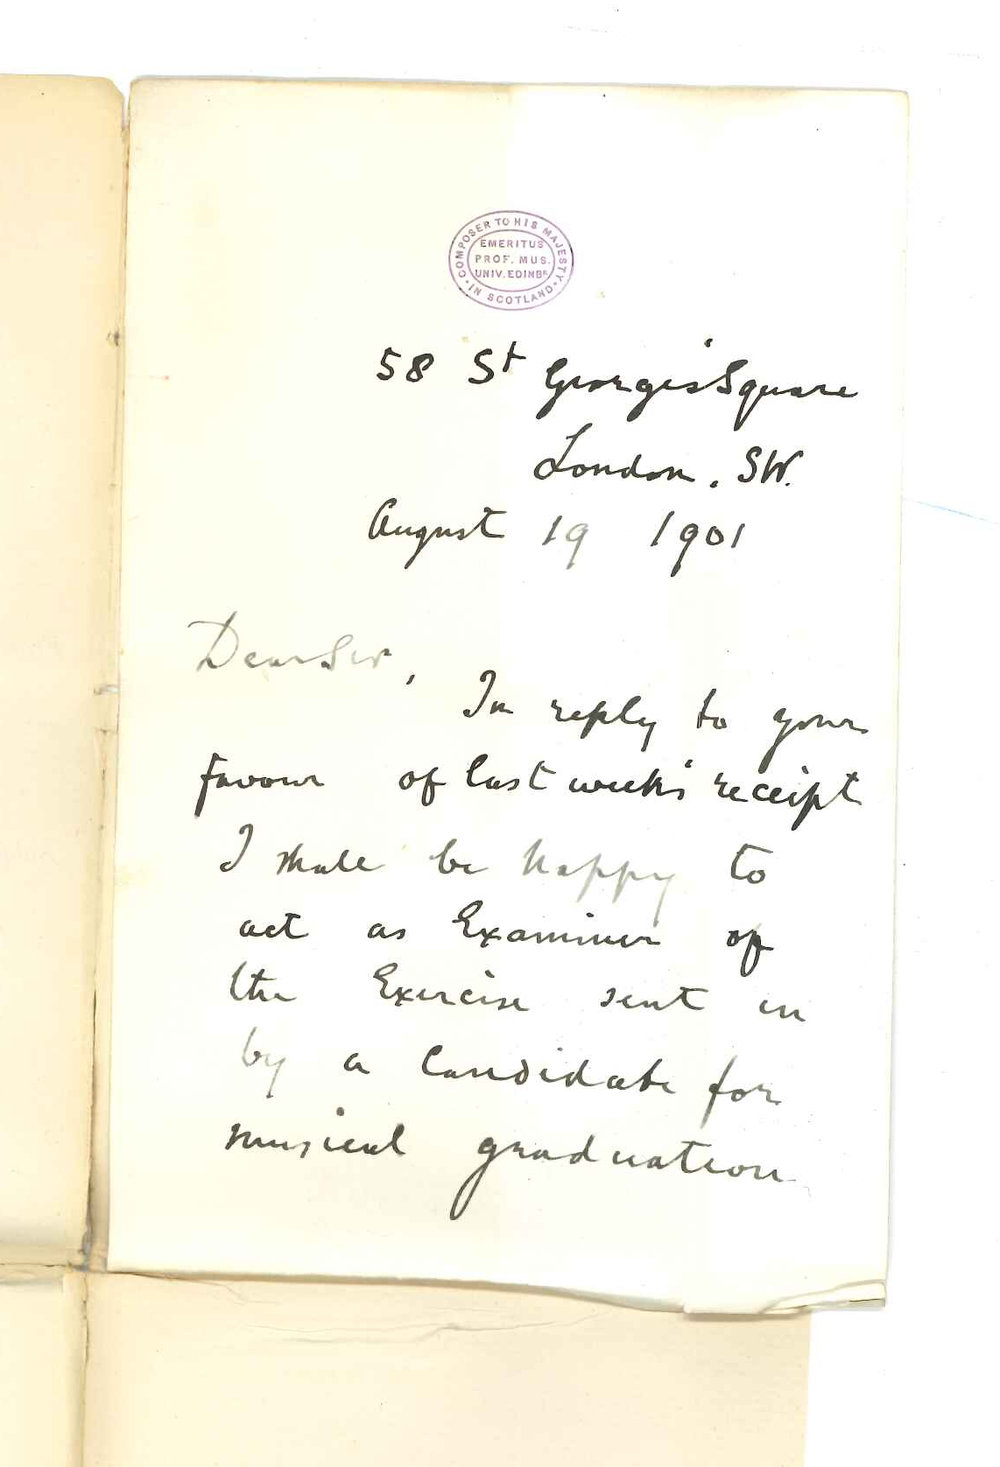 COMPOSER TO HIS MAJESTY
IN SCOTLAND
EMERITUS
PROF. MUS.
UNIV. EDINBR
58 St George's Square
London. SW.
August 19 1901
Dear Sir,
In reply to your
favour of last week's receipt
I shall be happy to
act as Examiner of
the Exercise sent in
by a Candidate for
musical graduation